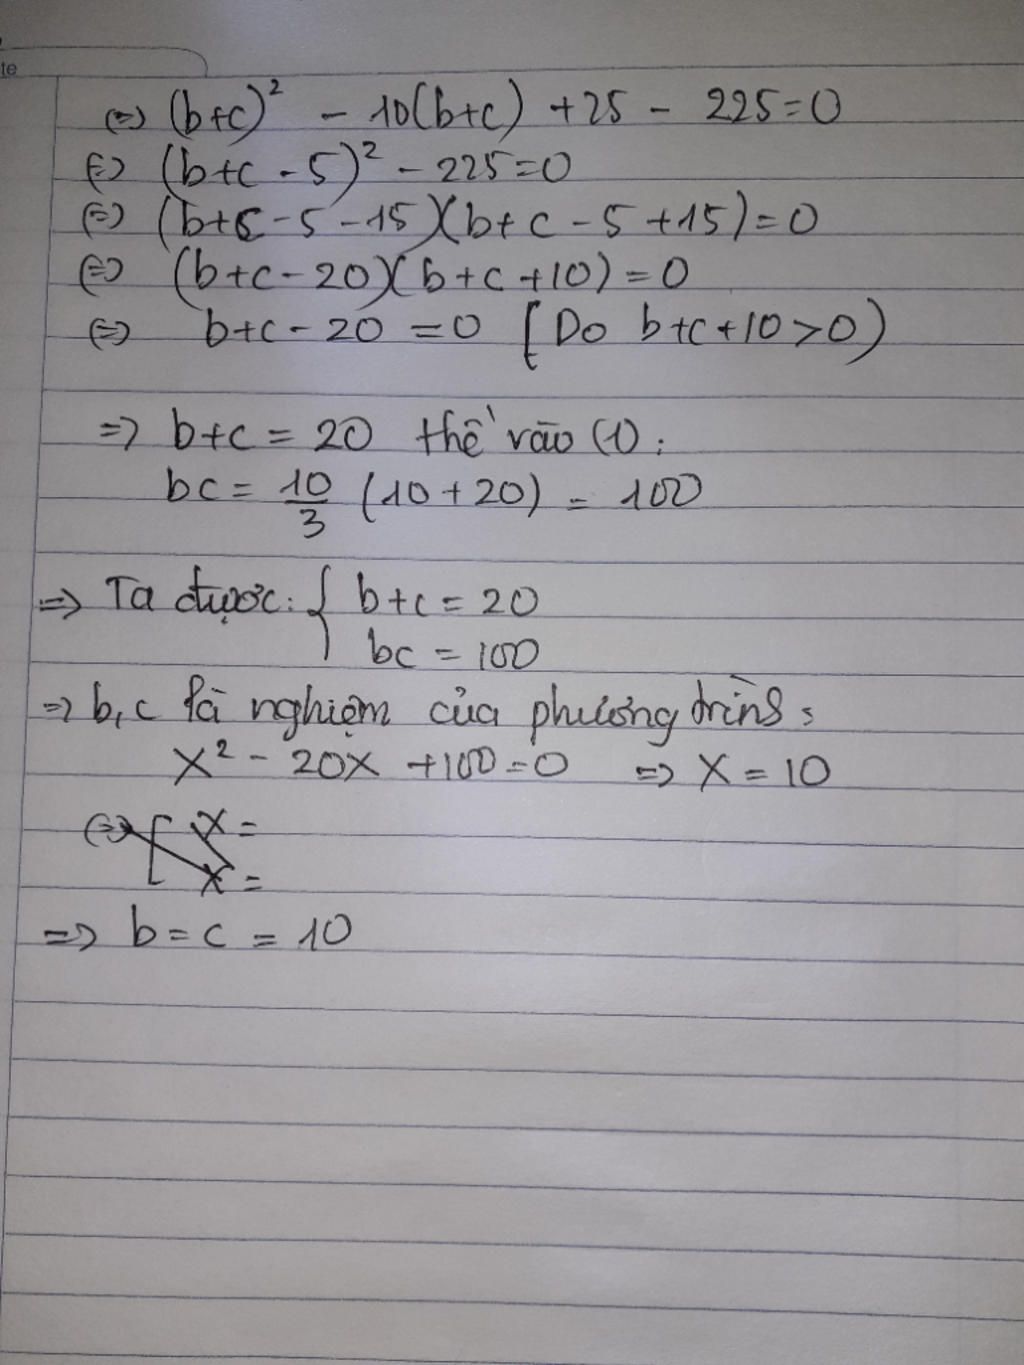 te
(=) (b+c)² - 10(b+c) + 25 - 225=0
(=) (b+c - 5)² - 225=0
(=) (b+c - 5 - 15)(b+c - 5 + 15)=0
(=) (b+c - 20)(b+c+10)=0
(=) b+c - 20 = 0 [Do b+c+10>0)
=> b+c = 20 thế vào (1):
bc = 10/3 (10+20) = 100
=> Ta được: { b+c = 20
bc = 100
=> b,c là nghiệm của phương trình:
X² - 20X + 100=0 => X = 10
(=) [ X =
X =
=> b = c = 10